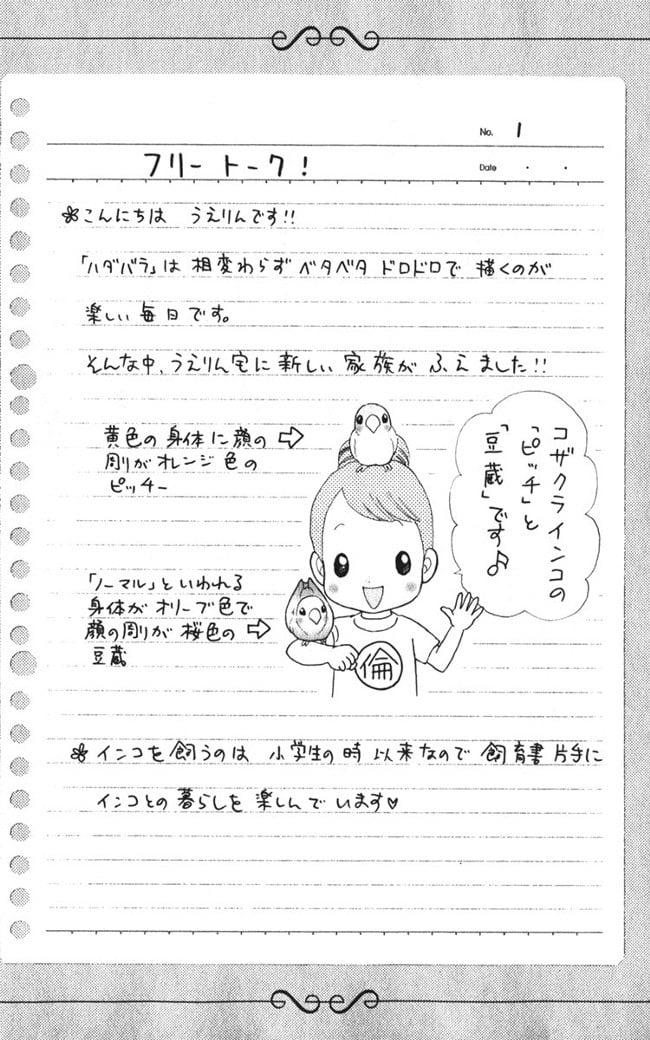 No. 1
フリートーク!
Date ・ ・
こんにちは うえりんです!!
「ハダバラ」は 相変わらず ベタベタ ドロドロで 描くのが
楽しい 毎日です。
そんな中、うえりん宅に 新しい 家族が ふえました!!
黄色の 身体に 顔の
周りがオレンジ色の
ピッチー
コザクラインコの
「ピッチ」と
「豆蔵」です♪
「ノーマル」といわれる
身体が オリーブ色で
顔の周りが 桜色の
豆蔵
倫
インコを飼うのは 小学生の時以来なので 飼育書片手に
インコとの暮らしを 楽しんでいます♡